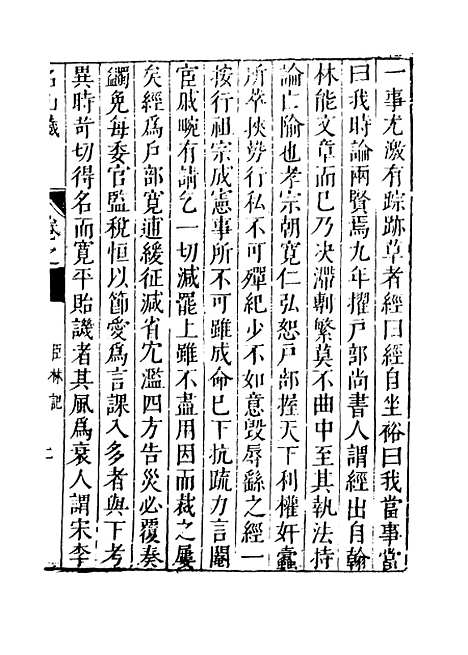 一事尤激有踪跡草者經曰經自坐裕曰我當事當
曰我時論兩賢焉九年擢戶部尚書人謂經出自翰
林能文章而已乃决滯剸繁莫不曲中至其執法持
論亡隃也孝宗朝寬仁弘恕戶部握天下利權奸蠹
所萃挾勢行私不可殫紀少不如意毀辱繇之經一
按行祖宗成憲事所不可雖成命已下抗疏力言閹
宦戚畹有請乞一切減罷上雖不盡用因而裁之屢
矣經爲戶部寬逋緩征減省冗濫四方告災必覆奏
蠲免每委官監稅恒以節愛爲言課入多者與下考
異時苛切得名而寬平貽譏者其風爲衰人謂宋李
名山藏
卷之
臣林記